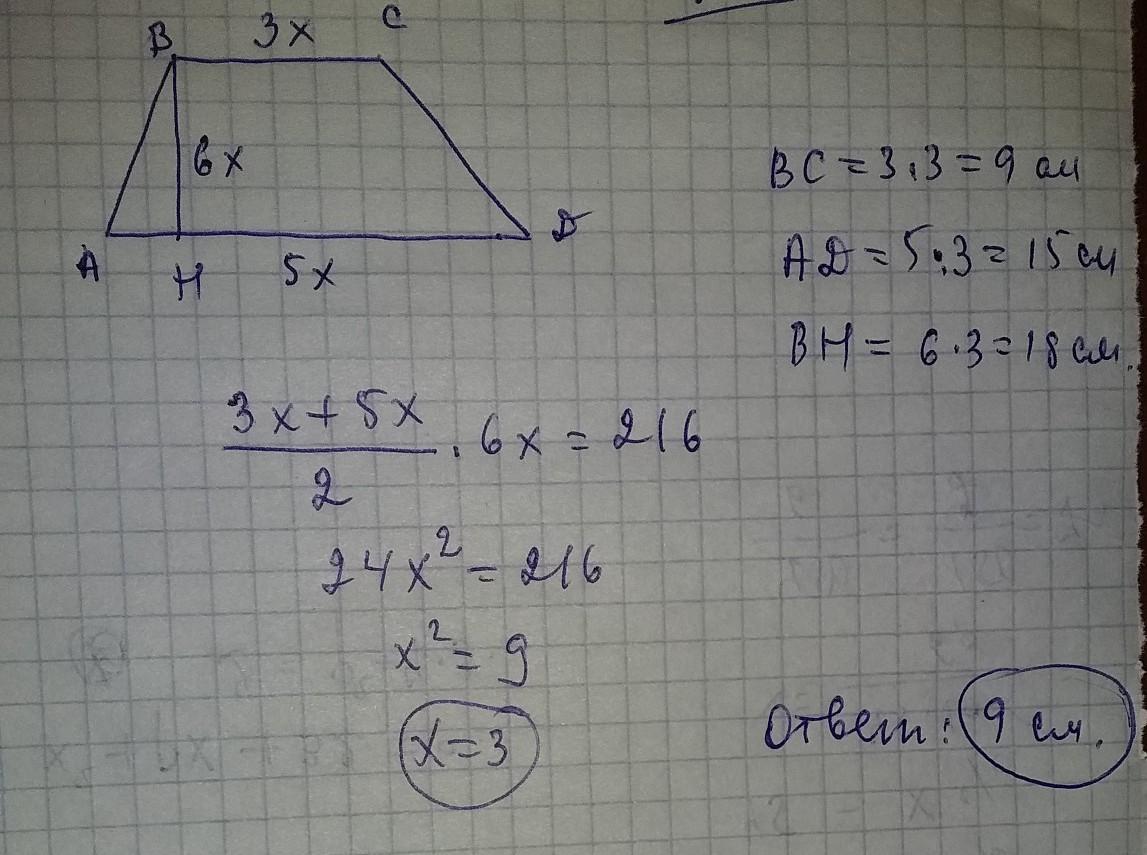 B 3x C
6x
A H 5x D
BC = 3·3 = 9 см
AD = 5·3 = 15 см
BH = 6·3 = 18 см.
3x + 5x
2
· 6x = 216
24x² = 216
x² = 9
x = 3
Ответ: 9 см.